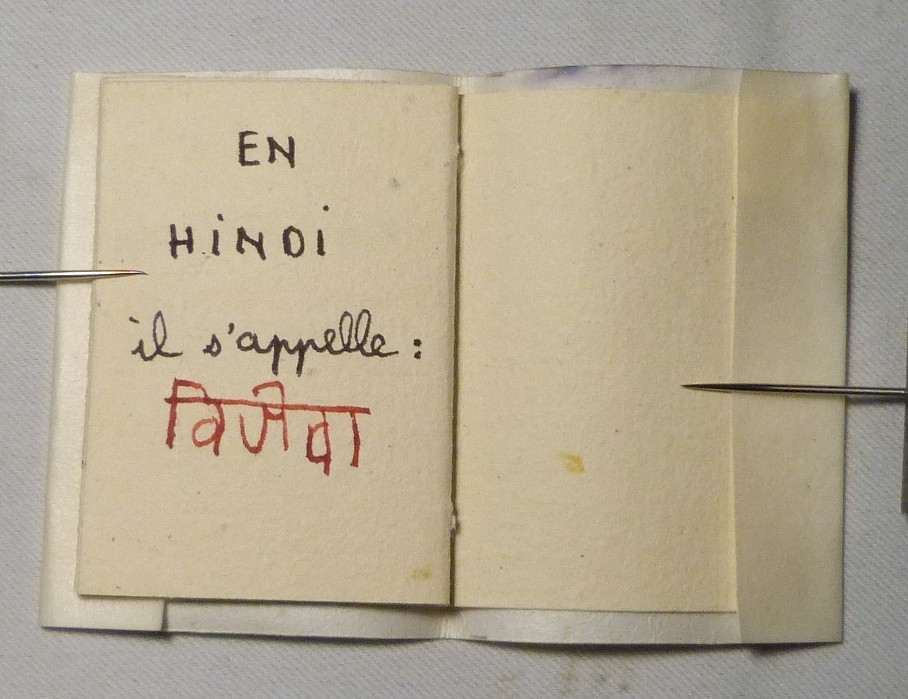 EN
HiNDi
il s'appelle :
विजेवा